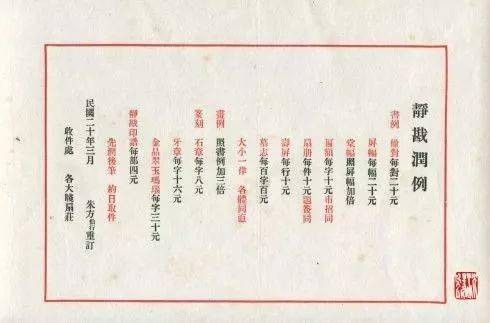 靜戡潤例
書例　楹對每對二十元
屏幅每幅二十元
堂幅照屏幅加倍
匾額每字十元市招同
扇册每件十元題簽同
壽屏每行十元
墓志每百字百元
大小一律　各體同値
畫例　照書例加三倍
篆刻　石章每字八元
牙章每字十六元
金晶翠玉瑪瑙每字三十元
靜戡印譜每部四元
先潤後筆　約日取件
民國二十年三月　朱方重訂
收件處　各大牋扇莊